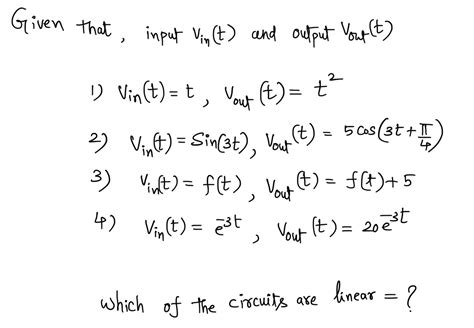 Given that, input Vin(t) and output Vout(t)
1) Vin(t) = t , Vout(t) = t²
2) Vin(t) = Sin(3t), Vout(t) = 5 cos(3t + π/4)
3) Vin(t) = f(t) , Vout(t) = f(t) + 5
4) Vin(t) = e^-3t , Vout(t) = 20 e^-3t
which of the circuits are linear = ?